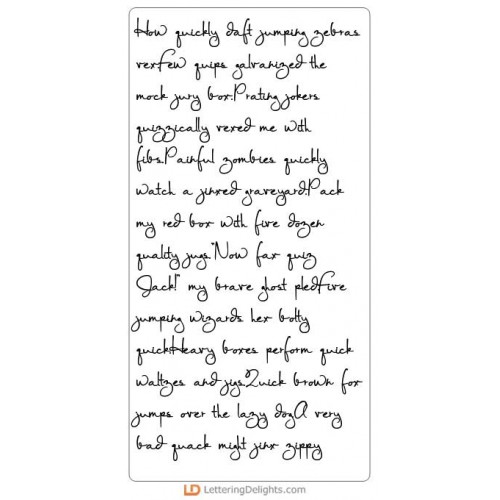 How quickly daft jumping zebras
vexFew quips galvanized the
mock jury box.Prating jokers
quizzically vexed me with
fibs.Painful zombies quickly
watch a jinxed graveyard.Pack
my red box with five dozen
quality jugs."Now fax quiz
Jack!" my brave ghost pledFive
jumping wizards hex bolty
quickHeavy boxes perform quick
waltzes and jigs.Quick brown fox
jumps over the lazy dogA very
bad quack might jinx zippy
LD LetteringDelights.com